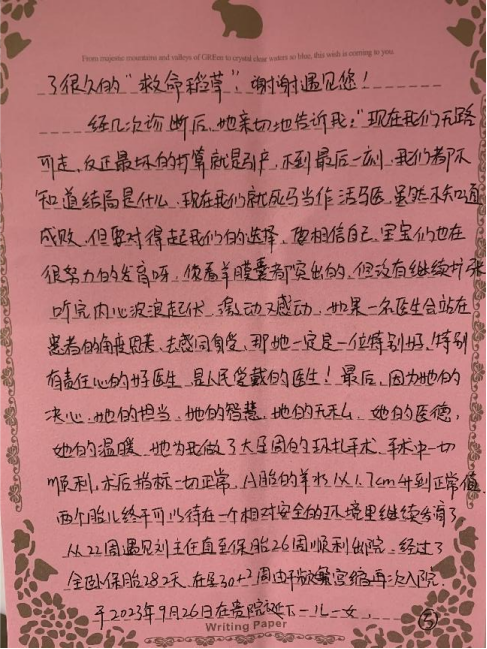 From majestic mountains and valleys of GREen to crystal clear waters so blue, this wish is coming to you
了很久的“救命稻草”，谢谢遇见您！
经几次诊断后，她亲切地告诉我：“现在我们无路
可走，反正最坏的打算就是引产，不到最后一刻，我们都不
知道结局是什么，现在我们就死马当作活马医，虽然不知道
成败，但要对得起我们的选择，要相信自己，里宝们也在
很努力的发育呀，你看羊膜囊都突出的，但没有继续扩张
听完内心波浪起伏，激动又感动，如果一名医生会站在
患者的角度思考，去感同身受，那她一定是一位特别好，特别
有责任心的好医生，是人民爱戴的医生！最后，因为她的
决心，她的担当，她的智慧，她的无私，她的医德，
她的温暖，她为我做了大孕周的环扎手术，手术中一切
顺利，术后指标一切正常，A胎的羊水从1.7cm升到正常值，
两个胎儿终于可以待在一个相对安全的环境里继续发育了
从22周遇见刘主任直至保胎26周顺利出院，经过了
全卧保胎282天，在孕30+2周由于频繁宫缩再次入院，
于2023年9月26日在贵院诞下一儿一女，
⑤
Writing Paper